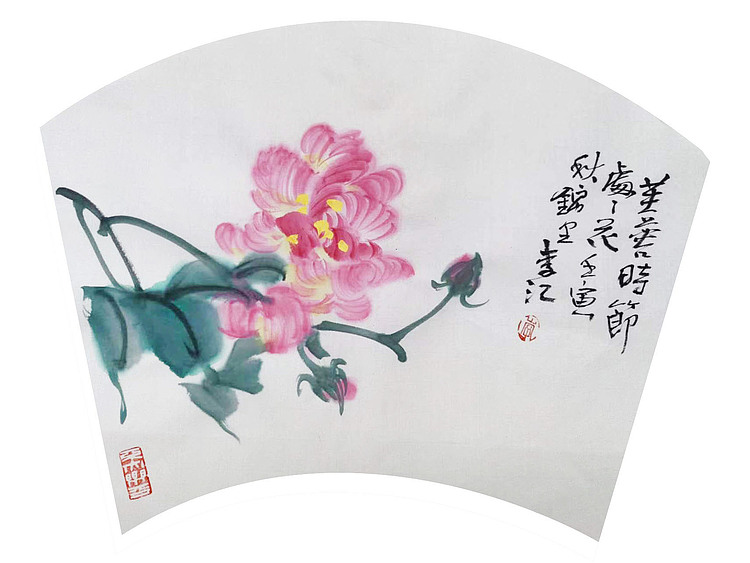 芙蓉時節
處々花壬寅
秋錦里
李江